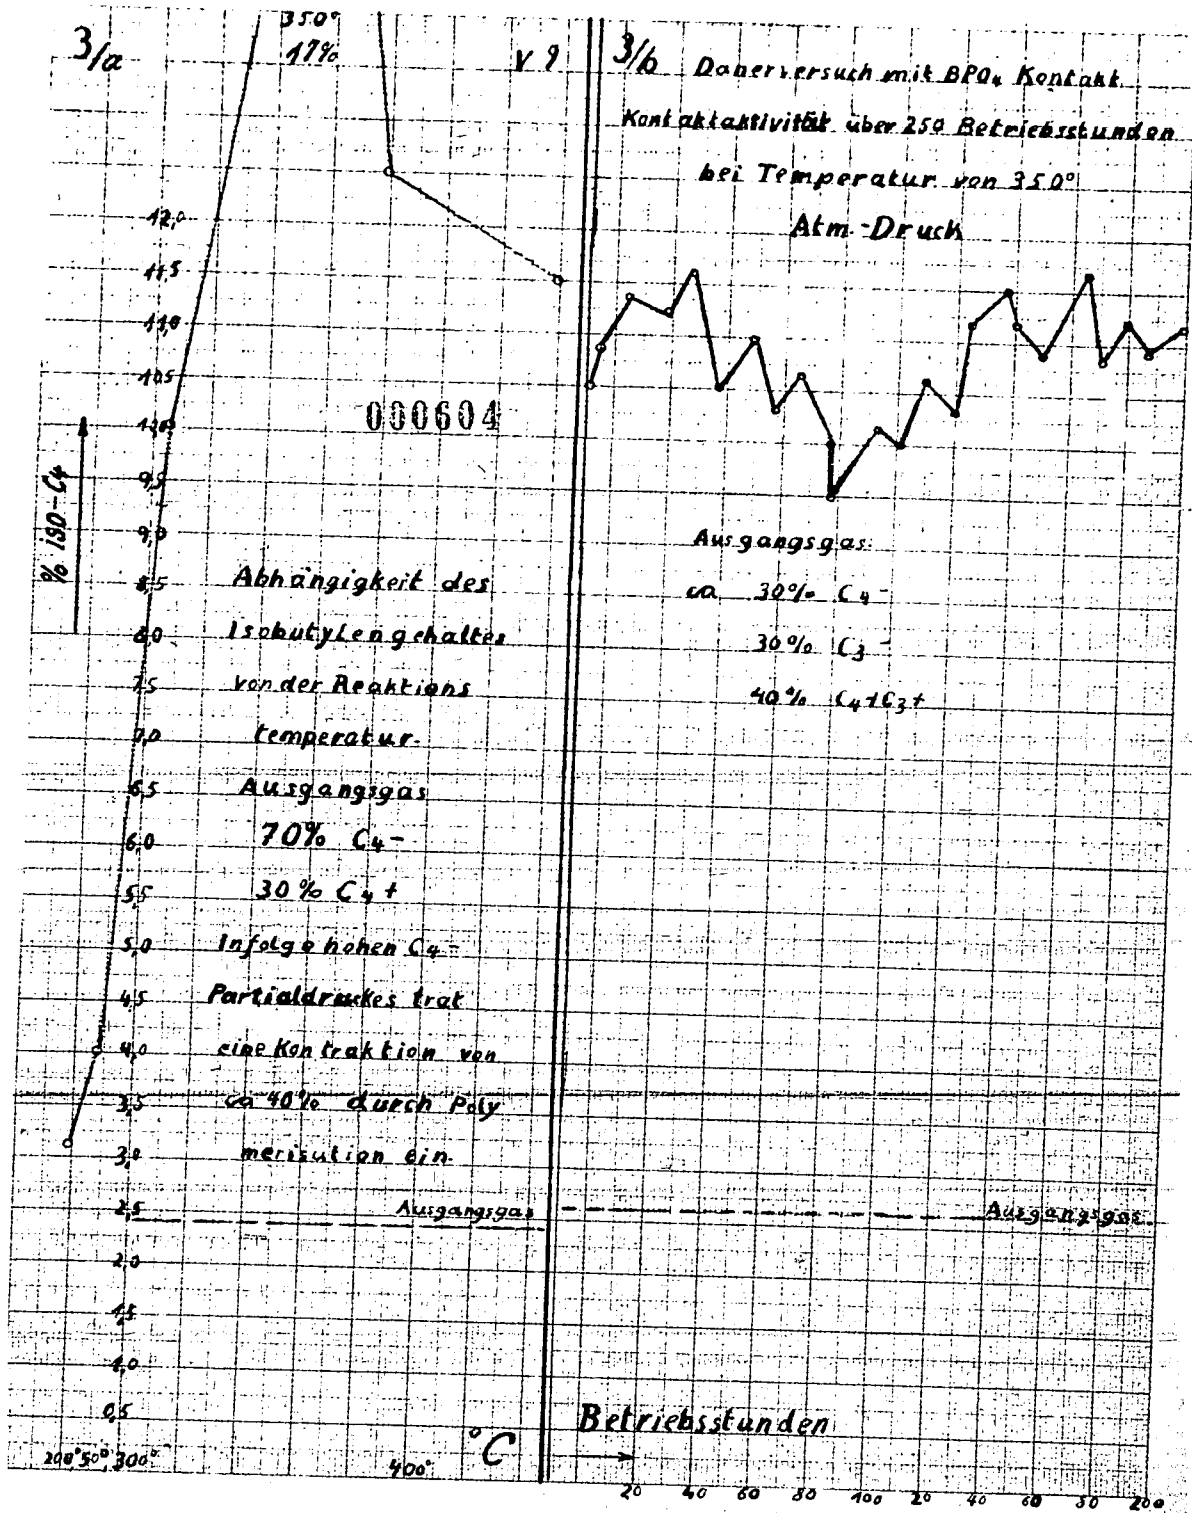 3/a
350°
17%
V 9
3/b Dauerversuch mit BPO₄ Kontakt
Kontaktaktivität über 250 Betriebsstunden
bei Temperatur von 350°
Atm-Druck
12,0
11,5
11,0
10,5
10,0
9,5
9,0
8,5
8,0
7,5
7,0
6,5
6,0
5,5
5,0
4,5
4,0
3,5
3,0
2,5
2,0
1,5
1,0
0,5
% iso-C₄
000604
Abhängigkeit des
Isobutylengehaltes
von der Reaktions
temperatur.
Ausgangsgas
70% C₄-
30% C₄+
Infolge hohen C₄-
Partialdruckes trat
eine Kontraktion von
ca 40% durch Poly
merisation ein.
Ausgangsgas
Ausgangsgas:
ca 30% C₄-
30% C₃-
40% C₄+C₃+
Ausgangsgas
200° 50° 300°
400°
°C
Betriebsstunden
20 40 60 80 100 20 40 60 80 200